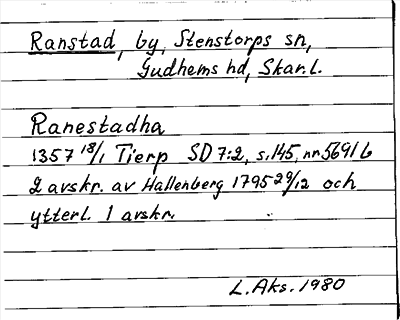 Ranstad, by, Stenstorps sn,
Gudhems hd, Skar.l.
Ranestadha
1357 18/1 Tierp SD 7:2, s.145, nr 5691 b
2 avskr. av Hallenberg 1795 29/12 och
ytterl. 1 avskr.
L.Aks. 1980